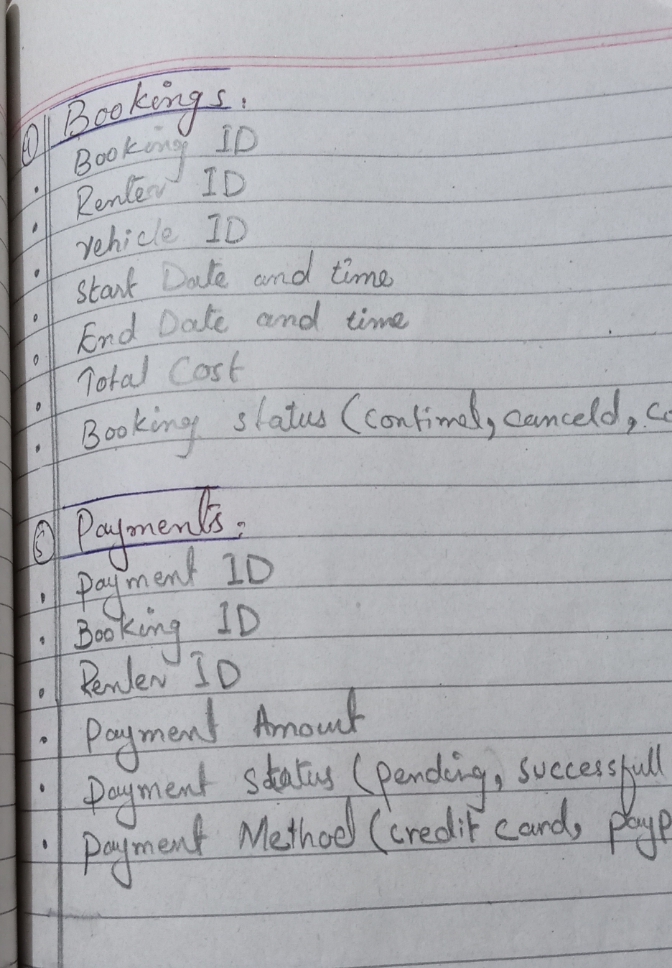 ④ Bookings:
• Booking ID
• Renter ID
• vehicle ID
• Start Date and time
• End Date and time
• Total Cost
• Booking status (contimed, canceld, co
⑤ Payments:
• Payment ID
• Booking ID
• Renter ID
• Payment Amount
• Payment status (pending, successfull
• Payment Method (credit card, payp